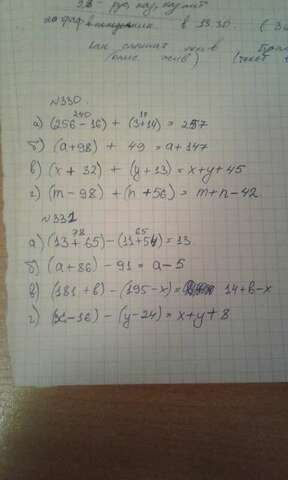 в 13.30.
№330
240 17
а) (256-16) + (3+14) = 257
б) (а+98) + 49 = а+147
в) (x+32) + (y+13) = x+y+45
г) (m-98) + (n+56) = m+n-42
№331
78 65
а) (13+65)-(11+54) = 13
б) (а+86) - 91 = а-5
в) (181+в) - (195-x) = 14+в-x
г) (x-16) - (y-24) = x+y+8